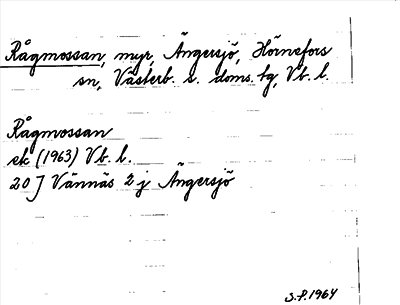 Rågmossan, myr, Ängersjö, Hörnefors
sn, Västerb. s. doms. hg, Vb. l.
Rågmossan
ek (1963) Vb. l.
20 J Vännäs 2 j Ängersjö
S.P. 1964